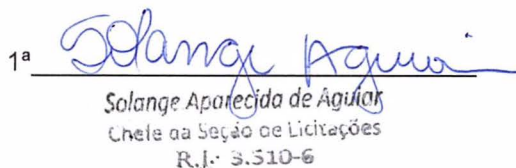 1ª Solange Aguiar
Solange Aparecida de Aguiar
Chefe da Seção de Licitações
R.J.: 3.510-6